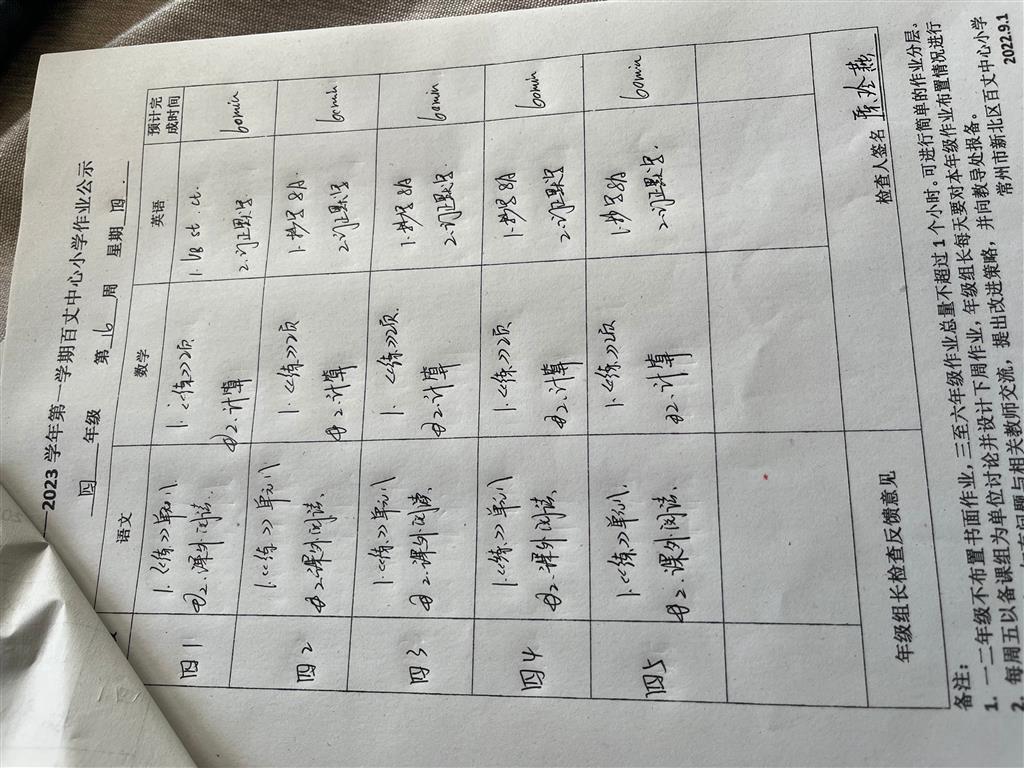 2023 学年第一学期百丈中心小学作业公示
四 年级 第 16 周 星期 四.
语文 数学 英语 预计完成时间
四1
1.《练》单元八
2.课外阅读.
1.《练》2页
2.计算
2.订正默写
60min
四2
1.《练》单元八
2.课外阅读.
1.《练》2页
2.计算
1.抄写8A.
2.订正默写
60min
四3
1.《练》单元八
2.课外阅读.
1.《练》2页
2.计算
1.抄写8A
2.订正默写
60min
四4
1.《练》单元八
2.课外阅读.
1.《练》2页
2.计算
1.抄写8A
2.订正默写
60min
四5
1.《练》单元八.
2.课外阅读.
1.《练》2页
2.计算
1.抄写8A
2.订正默写
60min
年级组长检查反馈意见
检查人签名
备注:
1. 一二年级不布置书面作业,三至六年级作业总量不超过 1 个小时。可进行简单的作业分层。
2. 每周五以备课组为单位讨论并设计下周作业,年级组长每天要对本年级作业布置情况进行
问题与相关教师交流,提出改进策略,并向教导处报备。
常州市新北区百丈中心小学
2022.9.1